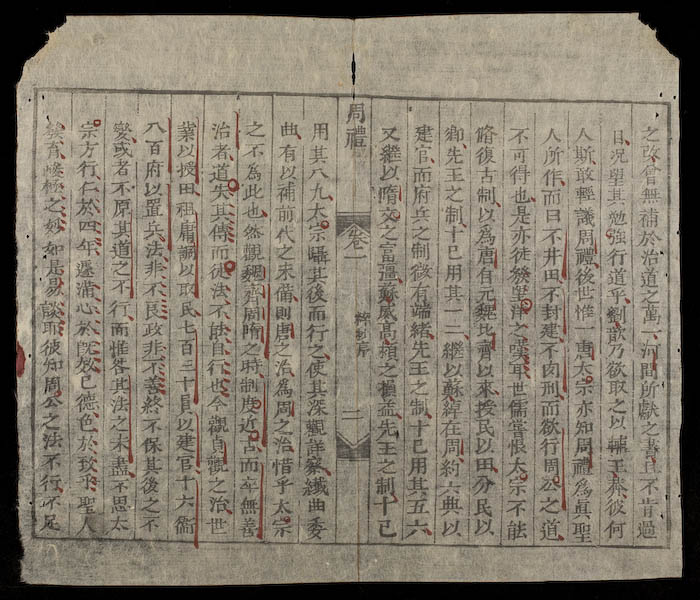 之改曾無補於治道之萬一河間所獻之書且不肯過
目况望其勉強行道乎劉歆乃欲取之以輔王莽彼何
人斯敢輕議周禮後世惟一唐太宗亦知周禮爲眞聖
人所作而曰不井田不封建不肉刑而欲行周公之道
不可得也是亦徒發望洋之嘆耳世儒嘗恨太宗不能
脩復古制以爲唐有元魏北齊以來授民以田分民以
鄉先王之制十已用其一二繼以蘇綽在周約六典以
建官而府兵之制微有端緒先王之制十已用其五六
又繼以隋文之富彊蘇威高熲之損益先王之制十已
周禮
卷一
序
二
用其八九太宗躡其後而行之使其深觀詳察纖曲委
曲有以補前代之未備則唐之治爲周之治惜乎太宗
之不為此也然觀魏齊周隋之時制度近古而卒無善
治者道失其傳而徒法不能自行也今觀貞觀之治世
業以授田租庸調以取民七百三十員以建官十六衛
八百府以置兵法非不良政非不善終不保其後之不
變或者不原其道之不行而惟咎其法之未盡不思太
宗方行仁於四年遽滿心於既效已德色於致平聖人
之妙如是易談耶彼知周公之法不行不足